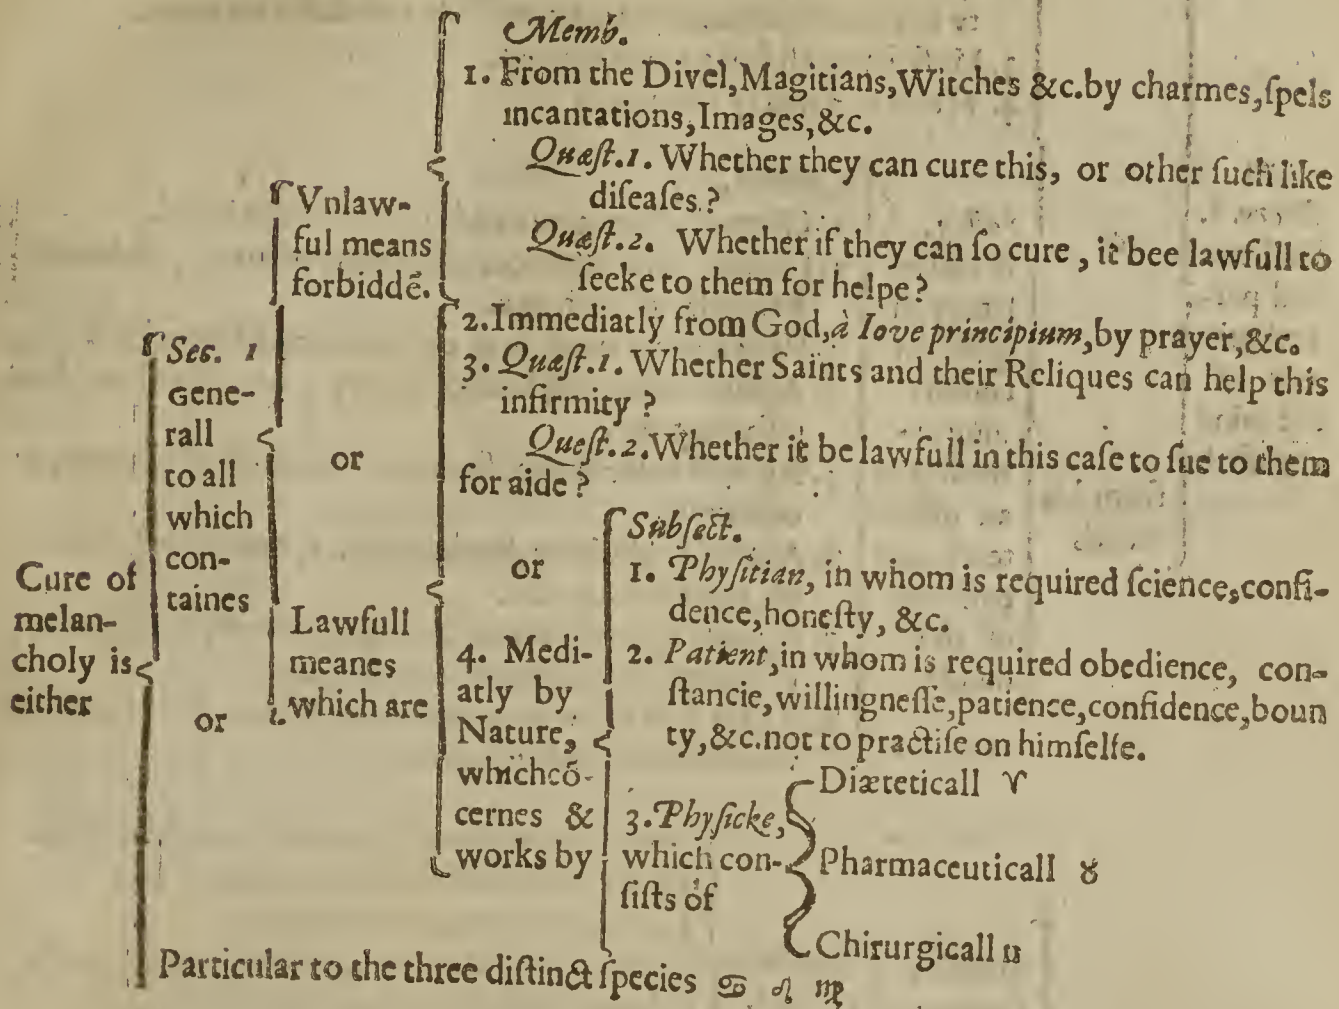 Cure of
melan-
choly is
either
Sec. 1
Gene-
rall
to all
which
con-
taines
or
Particular to the three distinct species ♋ ♌ ♍
Vnlaw-
ful means
forbiddē.
or
Lawfull
meanes
which are
Memb.
1. From the Divel, Magitians, Witches &c. by charmes, ſpels
incantations, Images, &c.
Quæſt. 1. Whether they can cure this, or other ſuch like
diſeaſes?
Quæſt. 2. Whether if they can ſo cure, it bee lawfull to
ſeeke to them for helpe?
2. Immediatly from God, à Iove principium, by prayer, &c.
3. Quæſt. 1. Whether Saints and their Reliques can help this
infirmity?
Queſt. 2. Whether it be lawfull in this caſe to ſue to them
for aide?
or
4. Medi-
atly by
Nature,
which cō-
cernes &
works by
Subſect.
1. Phyſitian, in whom is required ſcience, confi-
dence, honeſty, &c.
2. Patient, in whom is required obedience, con-
ſtancie, willingneſſe, patience, confidence, boun
ty, &c. not to practiſe on himſelfe.
3. Phyſicke,
which con-
ſiſts of
Diæteticall ♈
Pharmaceuticall ♉
Chirurgicall ♊